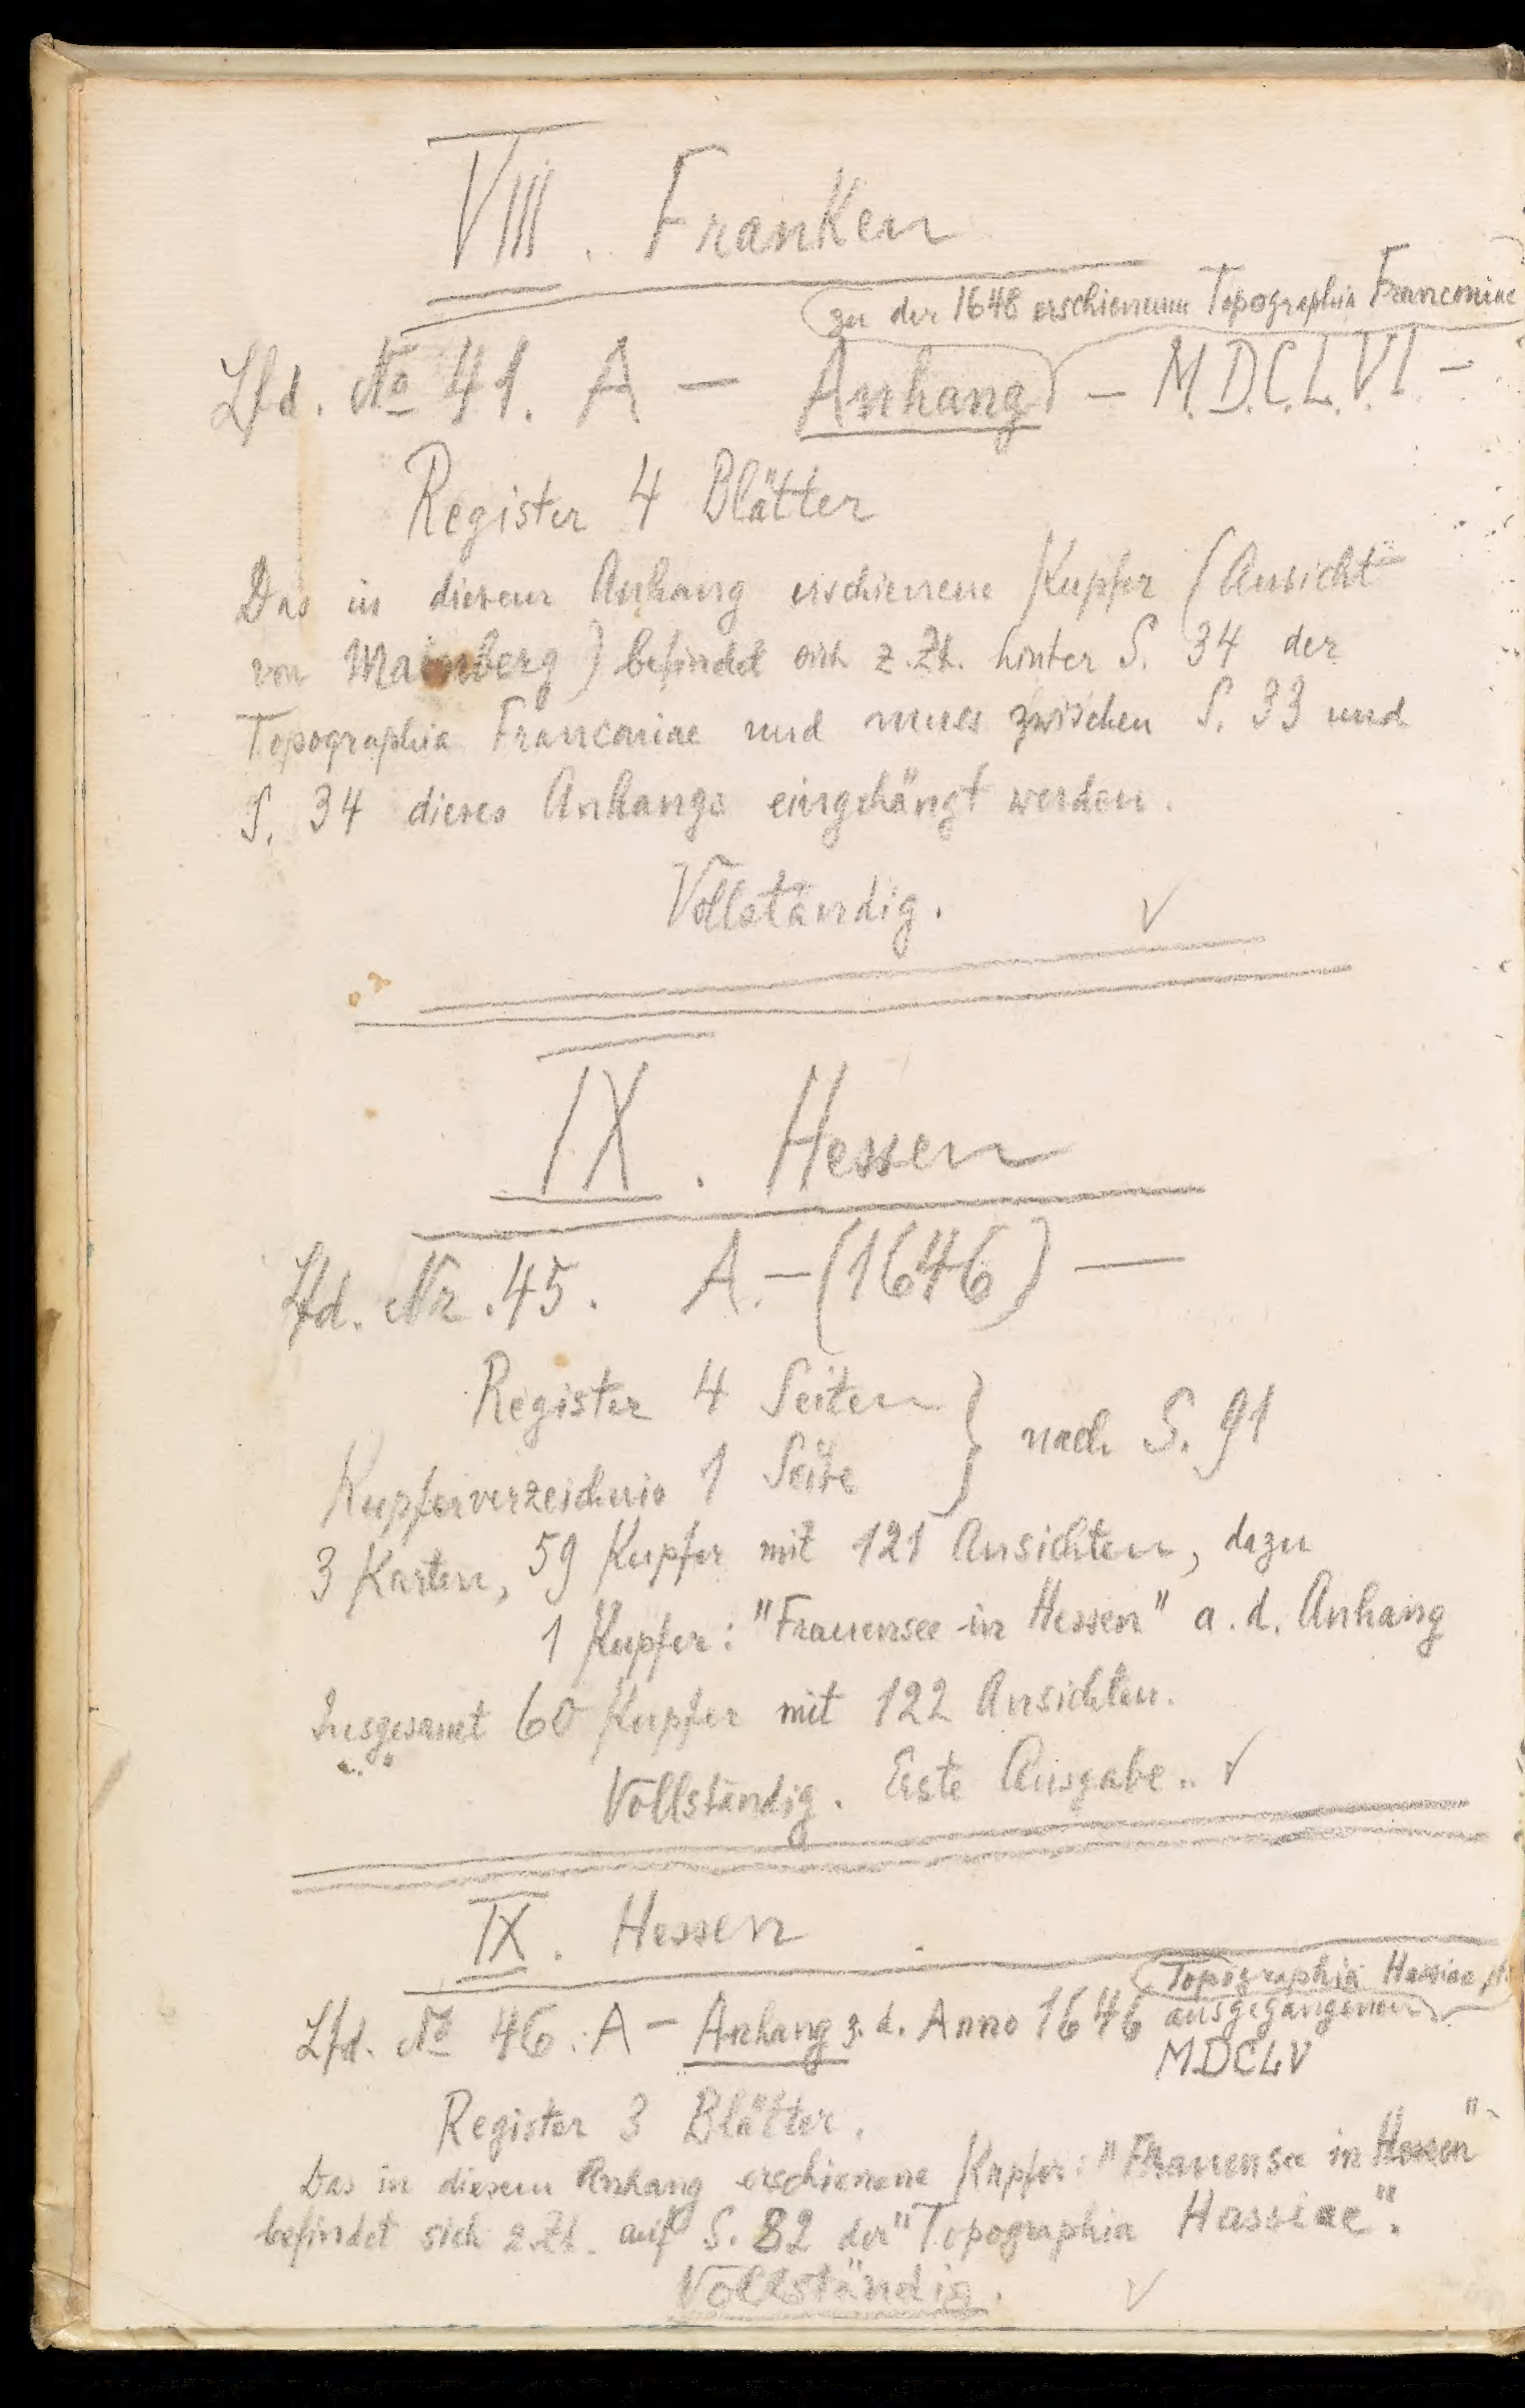 VIII. Franken
zu der 1648 erschienenen Topographia Franconiae
Lfd. No 41. A – Anhang – M.D.C.L.VI –
Register 4 Blätter
Das in diesem Anhang erschienene Kupfer (Ansicht
von Mainberg) befindet sich z.Zt. hinter S. 34 der
Topographia Franconiae und muss zwischen S. 33 und
S. 34 dieses Anhangs eingehängt werden.
Vollständig. ✓
IX. Hessen
Lfd. Nr. 45. A. – (1646) –
Register 4 Seiten } nach S. 91
Kupferverzeichnis 1 Seite
3 Karten, 59 Kupfer mit 121 Ansichten, dazu
1 Kupfer: "Frauensee in Hessen" a. d. Anhang
Insgesamt 60 Kupfer mit 122 Ansichten.
Vollständig. Erste Ausgabe.. ✓
IX. Hessen
Topographia Hassiae
Lfd. No 46. A – Anhang z. d. Anno 1646 ausgegangenen
MDCLV
Register 3 Blätter.
Das in diesem Anhang erschienene Kupfer: "Frauensee in Hessen"
befindet sich z.Zt. auf S. 82 der "Topographia Hassiae".
Vollständig. ✓